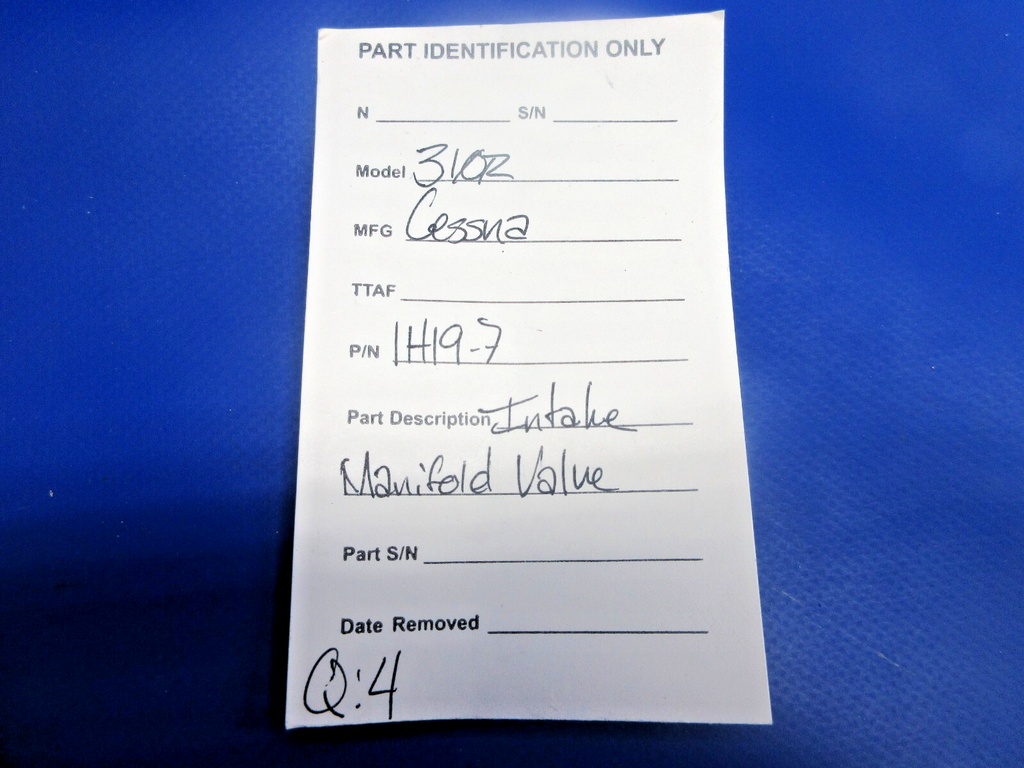 PART IDENTIFICATION ONLY
N S/N
Model 310R
MFG Cessna
TTAF
P/N 1H19-7
Part Description Intake
Manifold Valve
Part S/N
Date Removed
Q:4